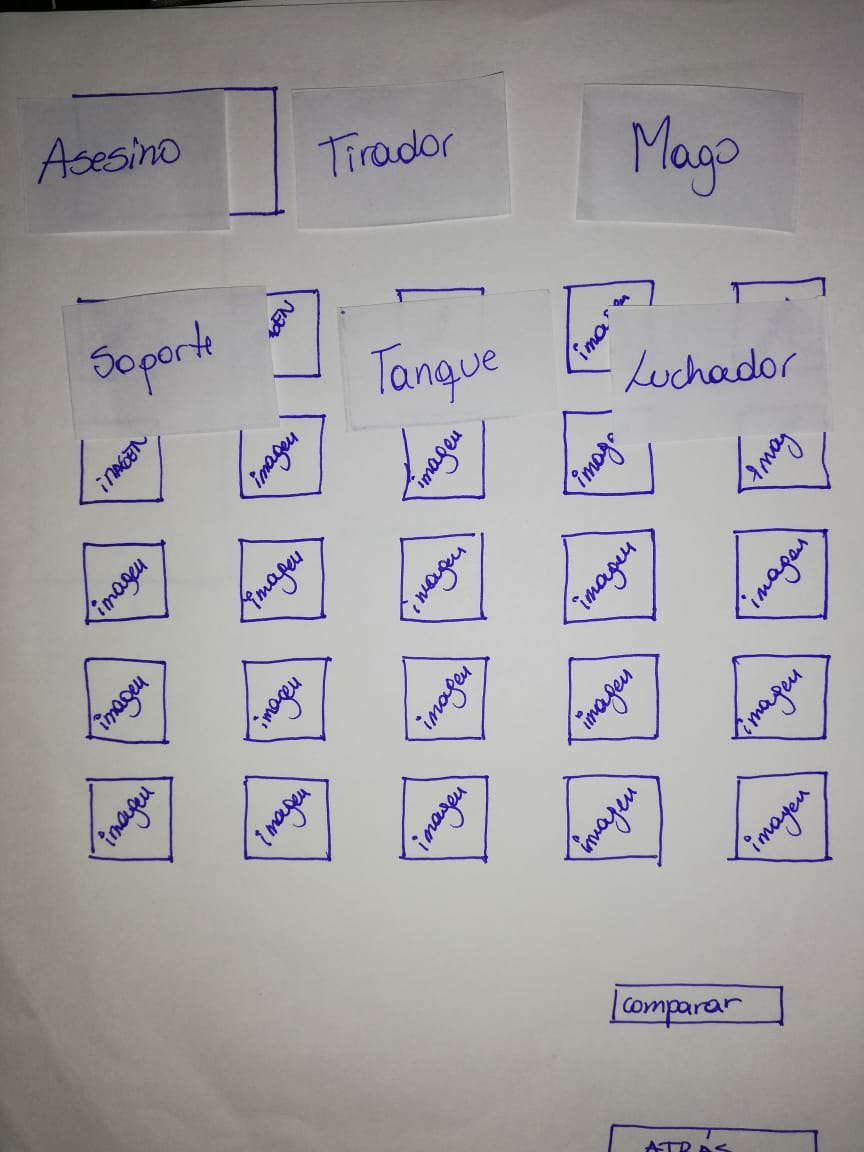 Asesino Tirador Mago
Soporte Tanque Luchador
imagen imagen imagen
imagen imagen imagen imagen imagen
imagen imagen imagen imagen imagen
imagen imagen imagen imagen imagen
comparar
ATRÁS